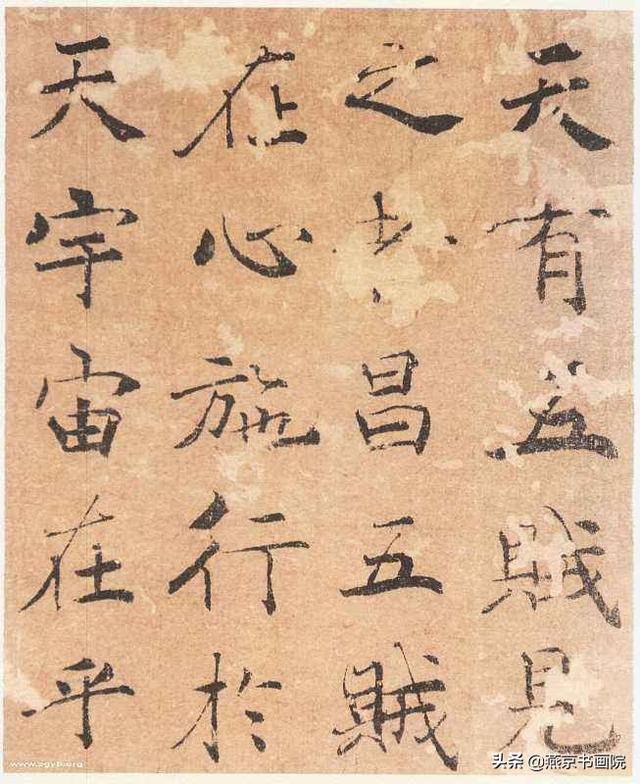 天有五賊見
之者昌五賊
在心施行於
天宇宙在乎
头条 @燕京书画院